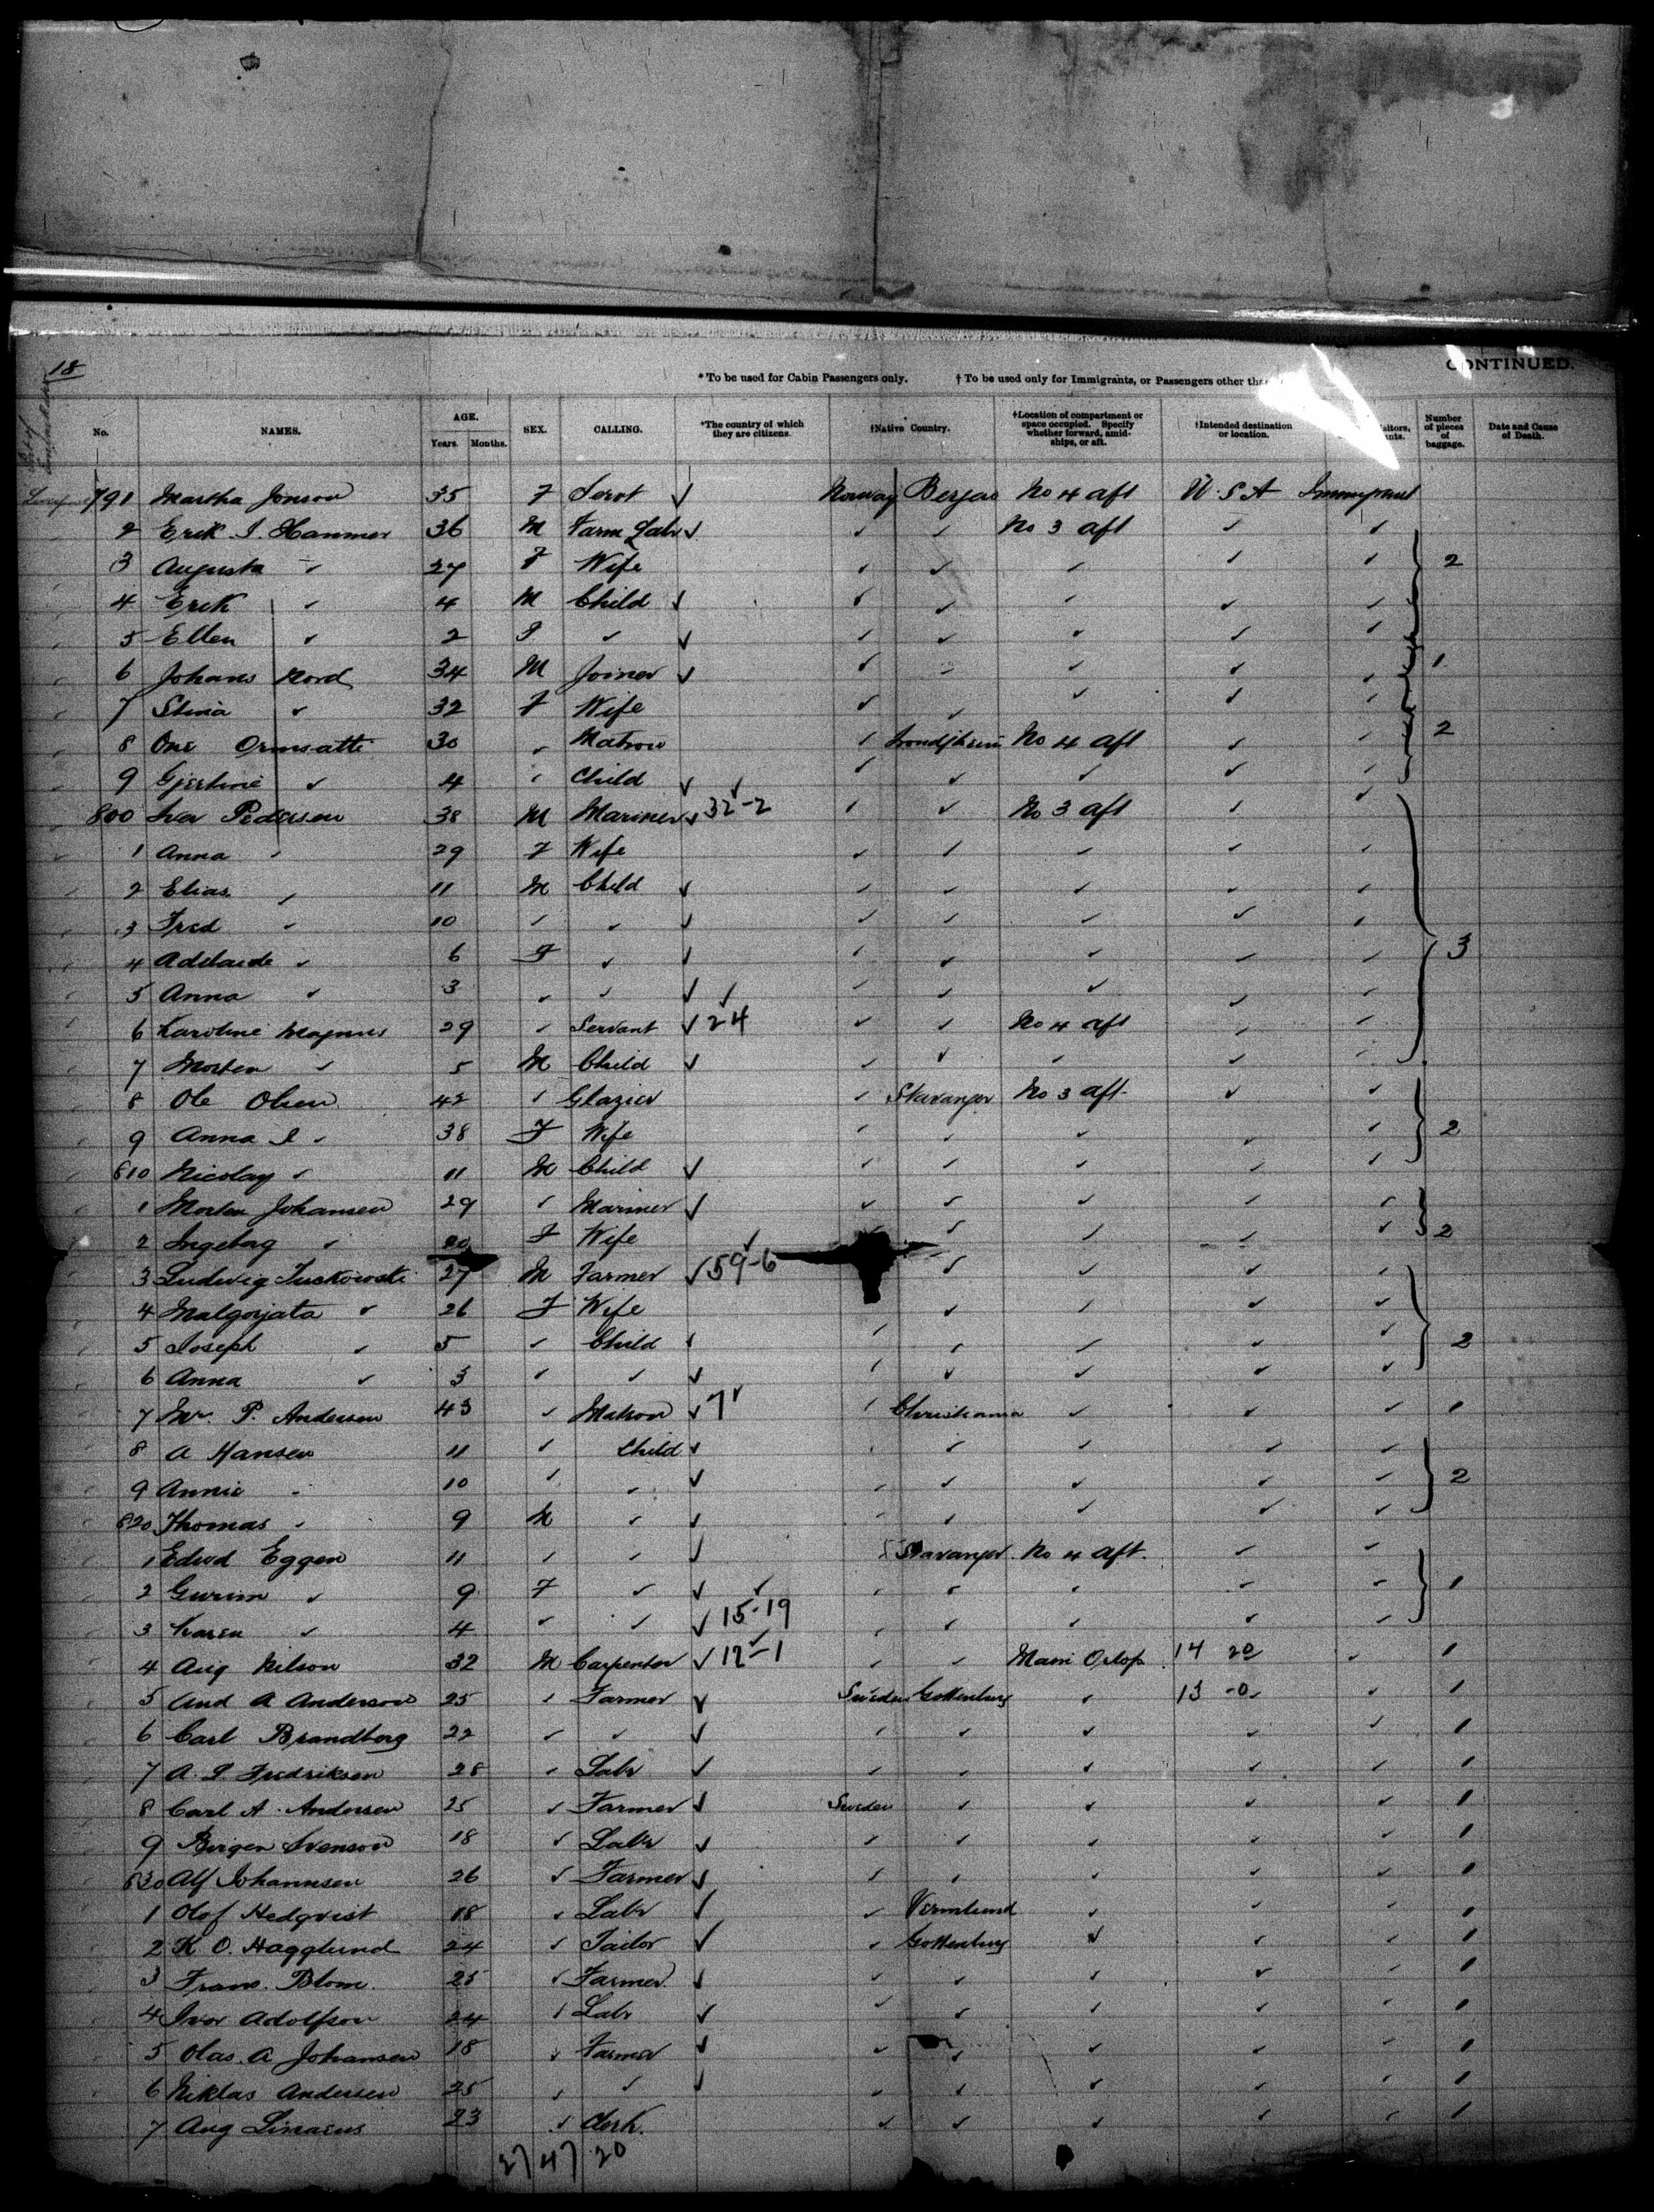 18
CONTINUED.
* To be used for Cabin Passengers only. † To be used only for Immigrants, or Passengers other tha
No. NAMES. AGE. Years. Months. SEX. CALLING. *The country of which they are citizens. †Native Country. †Location of compartment or space occupied. Specify whether forward, amidships, or aft. †Intended destination or location. Number of pieces of baggage. Date and Cause of Death.
791 Martha Jonson 35 F Servt ✓ Norway Bergen No 4 aft U.S.A Immigrant
2 Erik I. Hanmer 36 M Farm Labr ✓ ✓ ✓ No 3 aft ✓ ✓
3 Augusta ✓ 27 F Wife ✓ ✓ ✓ ✓ ✓ 2
4 Erik ✓ 4 M Child ✓ ✓ ✓ ✓ ✓ ✓
5 Ellen ✓ 2 F ✓ ✓ ✓ ✓ ✓ ✓ ✓
6 Johans Nord 34 M Joiner ✓ ✓ ✓ ✓ ✓ ✓ 1
7 Stina ✓ 32 F Wife ✓ ✓ ✓ ✓ ✓
8 One Ormsatte 30 ✓ Matron ✓ Trondjheim No 4 aft ✓ ✓ 2
9 Gjertine ✓ 4 ✓ Child ✓ ✓ ✓ ✓ ✓ ✓
800 Iver Pedersen 38 M Mariner ✓ 32-2 ✓ ✓ No 3 aft ✓ ✓
1 Anna ✓ 29 F Wife ✓ ✓ ✓ ✓ ✓
2 Elias ✓ 11 M Child ✓ ✓ ✓ ✓ ✓ ✓
3 Fred ✓ 10 ✓ ✓ ✓ ✓ ✓ ✓ ✓ ✓
4 Adelaide ✓ 6 F ✓ ✓ ✓ ✓ ✓ ✓ ✓ 3
5 Anna ✓ 3 ✓ ✓ ✓ ✓ ✓ ✓ ✓ ✓
6 Karoline Magnus 29 ✓ Servant ✓ 24 ✓ ✓ No 4 aft ✓ ✓
7 Morten ✓ 5 M Child ✓ ✓ ✓ ✓ ✓ ✓
8 Ole Olsen 42 ✓ Glazier ✓ Stavanger No 3 aft ✓ ✓
9 Anna I ✓ 38 F Wife ✓ ✓ ✓ ✓ ✓ 2
810 Nicolay ✓ 11 M Child ✓ ✓ ✓ ✓ ✓ ✓
1 Morten Johansen 29 ✓ Mariner ✓ ✓ ✓ ✓ ✓ ✓
2 Ingeborg ✓ F Wife ✓ ✓ ✓ ✓ ✓ 2
3 Ludwig 27 M Farmer ✓ 59-6 ✓ ✓ ✓ ✓
4 Malgorjata ✓ 26 F Wife ✓ ✓ ✓ ✓
5 Joseph ✓ 5 ✓ Child ✓ ✓ ✓ ✓ ✓ ✓ 2
6 Anna ✓ 3 ✓ ✓ ✓ ✓ ✓ ✓ ✓ ✓
7 P. Andersen 43 ✓ Matron ✓ 7 ✓ Christiania ✓ ✓ ✓ 1
8 A Hansen 11 ✓ Child ✓ ✓ ✓ ✓ ✓ ✓
9 Annie ✓ 10 ✓ ✓ ✓ ✓ ✓ ✓ ✓ ✓ 2
820 Thomas ✓ 9 M ✓ ✓ ✓ ✓ ✓ ✓ ✓
1 Edwd Eggen 11 ✓ ✓ ✓ ✓ Stavanger No 4 aft. ✓ ✓
2 ✓ 9 F ✓ ✓ ✓ ✓ ✓ ✓ ✓ 1
3 Karen ✓ 4 ✓ ✓ ✓ 15-19 ✓ ✓ ✓ ✓ ✓
4 Aug Nilson 32 M Carpenter ✓ 12-1 ✓ ✓ Main Orlop 14 20 ✓ 1
5 And A Anderson 25 ✓ Farmer ✓ Sweden Gottenburg ✓ 13 -0 ✓ 1
6 Carl Brandborg 22 ✓ ✓ ✓ ✓ ✓ ✓ ✓ ✓ 1
7 A. L. Fredriksen 28 ✓ Labr ✓ ✓ ✓ ✓ ✓ ✓ 1
8 Carl A. Andersen 25 ✓ Farmer ✓ Sweden ✓ ✓ ✓ ✓ 1
9 Birger Svenson 18 ✓ Labr ✓ ✓ ✓ ✓ ✓ ✓ 1
830 Alf Johannsen 26 ✓ Farmer ✓ ✓ ✓ ✓ ✓ ✓ 1
1 Olof Hedqvist 18 ✓ Labr ✓ ✓ Vermlund ✓ ✓ ✓ 1
2 K O. Hagglund 24 ✓ Tailor ✓ ✓ Gottenburg ✓ ✓ ✓ 1
3 Frans. Blom. 25 ✓ Farmer ✓ ✓ ✓ ✓ ✓ ✓ 1
4 Ivor Adolfson 24 ✓ Labr ✓ ✓ ✓ ✓ ✓ ✓ 1
5 Olas. A Johansen 18 ✓ Farmer ✓ ✓ ✓ ✓ ✓ ✓ 1
6 Niklas Andersen 25 ✓ ✓ ✓ ✓ ✓ ✓ ✓ ✓ 1
7 Aug Linaeus 23 ✓ Clerk. ✓ ✓ ✓ ✓ ✓ 1
27 47 20